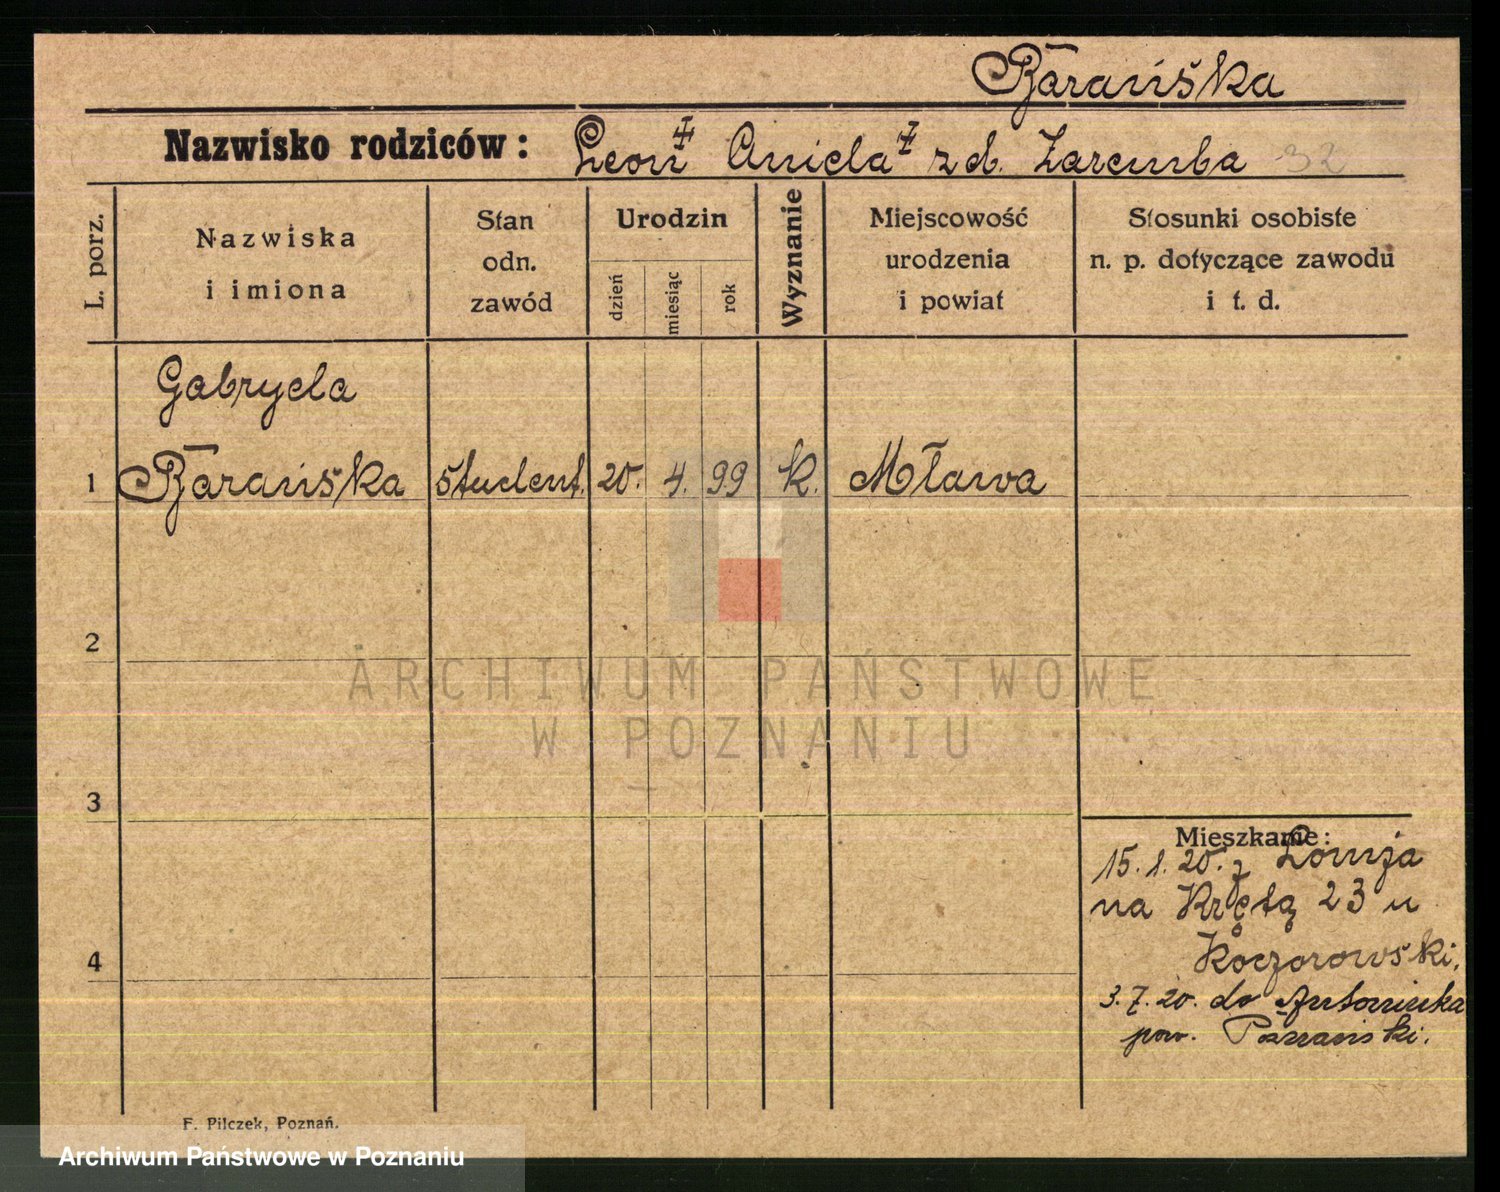 Barańska
Nazwisko rodziców: Leon ‡ Aniela ‡ z d. Zaremba 32
L. porz.
Nazwiska
i imiona
Stan
odn.
zawód
Urodzin
dzień
miesiąc
rok
Wyznanie
Miejscowość
urodzenia
i powiat
Stosunki osobiste
n. p. dotyczące zawodu
i t. d.
Gabryela
1 Barańska student. 20. 4. 99 k. Mława
2
ARCHIWUM PAŃSTWOWE
W POZNANIU
3
Mieszkanie:
15.1.20. z Łomża
na Krętą 23 u
Koczorowski.
4
3.7.20. do Antoninka
pow. Poznański.
F. Pilczek, Poznań.
Archiwum Państwowe w Poznaniu